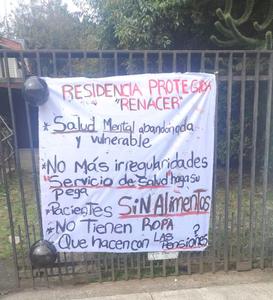 RESIDENCIA PROTEGIDA
"RENACER"
* Salud Mental abandonada
y vulnerable
* No Más irregularidades
* Servicio de Salud haga su
pega
* Pacientes SIN Alimentos
* No Tienen ROPA
* Que hacen con LAS Pensiones?